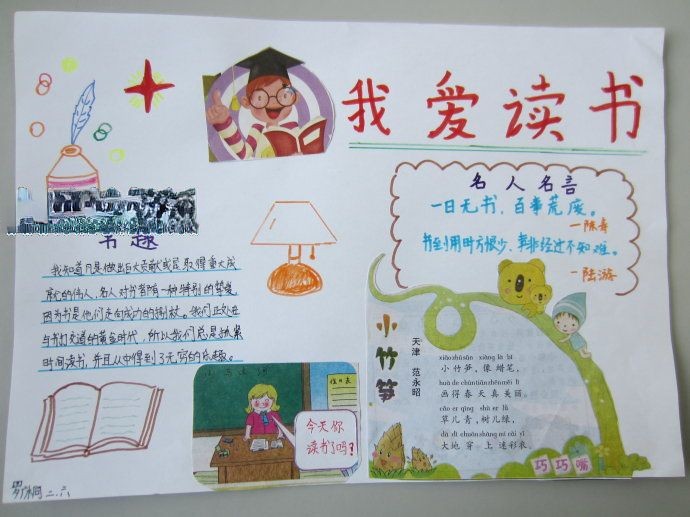 我爱读书
名人名言
一日无书，百事荒废。
—陈寿
书到用时方恨少、事非经过不知难。
—陆游
书趣
我知道凡是做出巨大贡献或是取得重大成
就的伟人、名人对书都有一种特别的挚爱
因为书是他们走向成功的拐杖。我们正处在
与书打交道的黄金时代，所以我们总是抓紧
时间读书，并且从中得到了无穷的乐趣。
今天你
读书了吗？
小竹笋
天津 范永昭
xiǎo zhú sǔn xiàng là bǐ
小竹笋，像蜡笔，
huà de chūn tiān zhēn měi lì
画得春天真美丽。
cǎo er qīng shù er lǜ
草儿青，树儿绿，
dà dì chuān shàng mí cǎi yī
大地穿上迷彩衣。
巧巧嘴
二.六